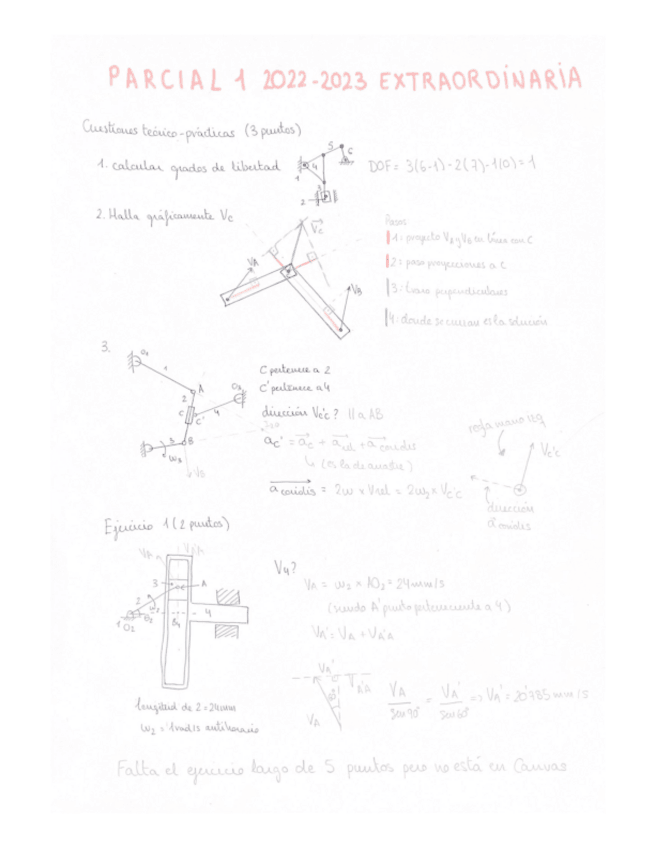 PARCIAL 1 2022-2023 EXTRAORDINARIA
Cuestiones teórico-prácticas (3 puntos)
1. calcular grados de libertad
DOF = 3(6-1)-2(7)-1(0)=1
1 2 3 4 5 6
2. Halla gráficamente Vc
Vc
VA
VB
Pasos
1: proyecto VA y VB en línea con C
2: paso proyecciones a C
3: trazo perpendiculares
4: donde se cruzan es la solución
3.
O2 1 A 2 O3 C C' 4 3 B
VB
C pertenece a 2
C' pertenece a 4
dirección Vc'c? || a AB
ac' = ac + arel + acoriolis
acoriolis = 2ω x Vrel = 2ω2 x Vc'c
regla mano izq
Vc'c
dirección
a coriolis
Ejercicio 1 (2 puntos)
VA
3 A
2 4
1 O2 θ2
longitud de 2 = 24mm
ω2 = 1rad/s antihorario
V4?
VA = ω2 x AO2 = 24mm/s
(siendo A' punto perteneciente a 4)
VA' = VA + VA'A
VA'
VA'A
VA
VA/sen90° = VA'/sen60° => VA' = 20'785 mm/s
Falta el ejercicio largo de 5 puntos pero no está en Canvas